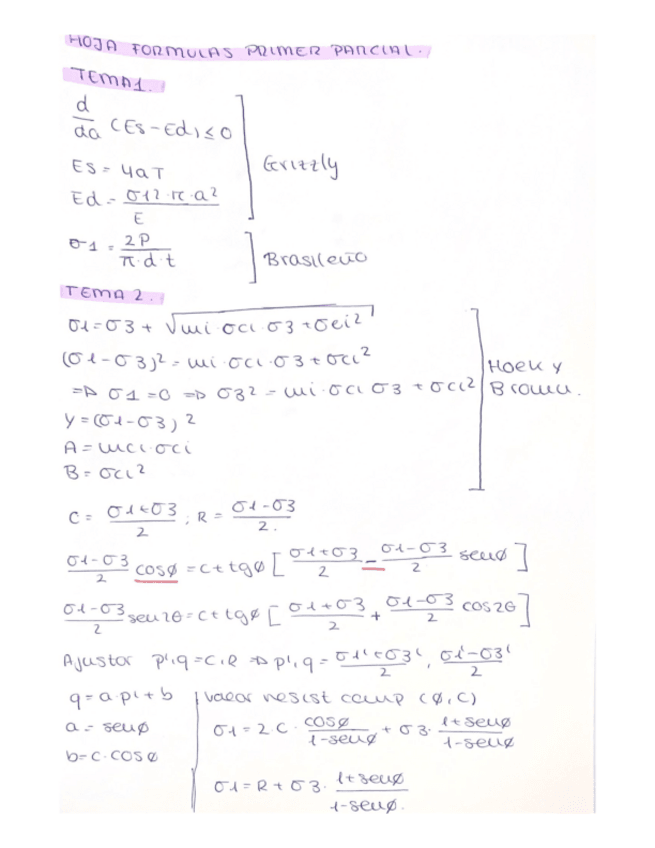 HOJA FORMULAS PRIMER PARCIAL.
TEMA1.
d/da (Es-Ed) ≤ 0
Es = 4aT
Ed = σ1²·π·a²/E
Grizzly
σ1 = 2P/π·d·t
Brasileño
TEMA 2.
σ1=σ3+√mi·σci·σ3+σci²
(σ1-σ3)² = mi·σci·σ3+σci²
⇒ σ1=0 ⇒ σ3² = mi·σci σ3 + σci²
Hoek y Brown.
Y=(σ1-σ3)²
A=mci·σci
B=σci²
C = σ1+σ3/2 ; R = σ1-σ3/2.
σ1-σ3/2 cosφ = c+tgφ [σ1+σ3/2 - σ1-σ3/2 senφ]
σ1-σ3/2 sen2θ = c+tgφ [σ1+σ3/2 + σ1-σ3/2 cos2θ]
Ajustar p',q=C,R ⇒ p',q = σ1'+σ3'/2, σ1'-σ3'/2
q=a·p'+b
a = senφ
b=c·cosφ
valor resist comp (φ,C)
σ1=2C·cosφ/1-senφ + σ3·1+senφ/1-senφ
σ1=R+σ3·1+senφ/1-senφ.